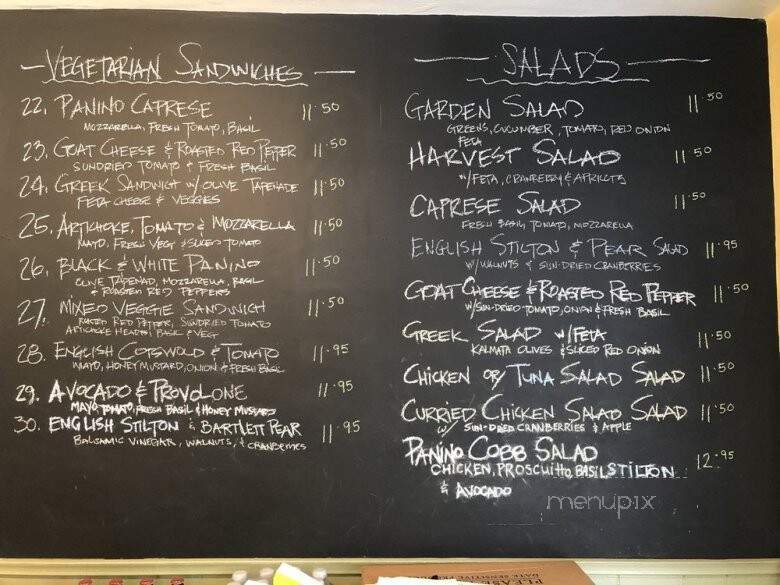 VEGETARIAN SANDWICHES
22. PANINO CAPRESE 11.50
MOZZARELLA, FRESH TOMATO, BASIL
23. GOAT CHEESE & ROASTED RED PEPPER 11.50
SUNDRIED TOMATO & FRESH BASIL
24. GREEK SANDWICH W/ OLIVE TAPENADE 11.50
FETA CHEESE & VEGGIES
25. ARTICHOKE, TOMATO & MOZZARELLA 11.50
MAYO, FRESH VEG & SLICED TOMATO
26. BLACK & WHITE PANINO 11.50
OLIVE TAPENAD, MOZZARELLA, BASIL
& ROASTED RED PEPPERS
27. MIXED VEGGIE SANDWICH 11.50
ROASTED RED PEPPER, SUNDRIED TOMATO
ARTICHOKE HEARTS, BASIL & VEG
28. ENGLISH COTSWOLD & TOMATO 11.95
MAYO, HONEY MUSTARD, ONION & FRESH BASIL
29. AVOCADO & PROVOLONE 11.95
MAYO TOMATO, FRESH BASIL & HONEY MUSTARD
30. ENGLISH STILTON & BARTLETT PEAR 11.95
BALSAMIC VINEGAR, WALNUTS, & CRANBERRIES
SALADS
GARDEN SALAD 11.50
GREENS, CUCUMBER, TOMATO, RED ONION
FETA
HARVEST SALAD 11.50
W/ FETA, CRANBERRY & APRICOTS
CAPRESE SALAD 11.50
FRESH BASIL, TOMATO, MOZZARELLA
ENGLISH STILTON & PEAR SALAD 11.95
W/ WALNUTS & SUN-DRIED CRANBERRIES
GOAT CHEESE & ROASTED RED PEPPER 11.50
W/ SUN-DRIED TOMATO, ONION & FRESH BASIL
GREEK SALAD W/ FETA 11.50
KALMATA OLIVES & SLICED RED ONION
CHICKEN OR TUNA SALAD SALAD 11.50
CURRIED CHICKEN SALAD SALAD 11.50
W/ SUN-DRIED CRANBERRIES & APPLE
PANINO COBB SALAD 12.95
CHICKEN, PROSCUITTO, BASIL STILTON
& AVOCADO
menupix
PLEASE
DATE SENSITIVE